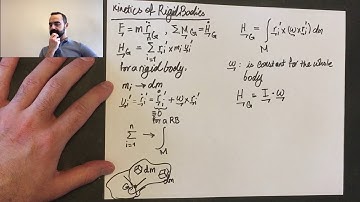 Kinetics of Rigid Bodies
F = m r̈_G , ΣM_G = Ḣ_G
H_G = Σ_{i=1}^{n} r_i' × m_i v_i'
for a rigid body.
m_i → dm
v_i' = ṙ_i' = ṙ_i' + ω × r_i'
= 0
for a RB
Σ_{i=1}^{n} → ∫_M
G dm
dm
H_G = ∫_M r_i' × (ω × r_i') dm
ω : is constant for the whole
body
H_G = I · ω